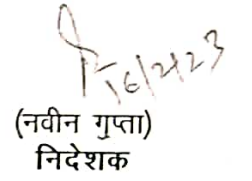 16/2/23
(नवीन गुप्ता)
निदेशक